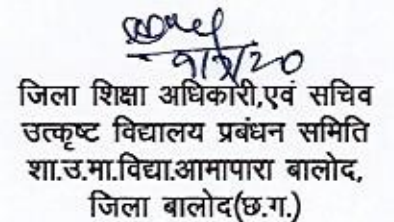 जिला शिक्षा अधिकारी,एवं सचिव
उत्कृष्ट विद्यालय प्रबंधन समिति
शा.उ.मा.विद्या.आमापारा बालोद,
जिला बालोद(छ.ग.)